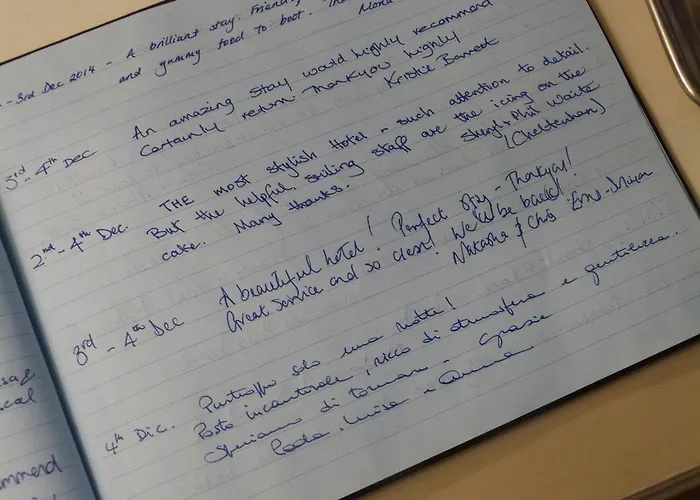 - 3rd Dec 2014 - A brilliant stay. Friendly
and yummy food to boot.
3rd - 4th Dec An amazing stay would highly recommend
Certainly return Thankyou highly
Kristie Barrett
2nd - 4th Dec. THE most stylish Hotel - such attention to detail.
But the helpful, smiling staff are the icing on the
cake. Many thanks. Sheryl & Phil Waite
(Cheltenham)
3rd - 4th Dec A beautiful hotel! Perfect stay - Thankyou!
Great service and so clean! We'll be back!
Natasha & Chris
4th Dic. Purtroppo solo una notte!
Posto incantevole, ricco di atmosfera e gentilezza.
Speriamo di tornare - Grazie
Paola, Luisa e
ommend